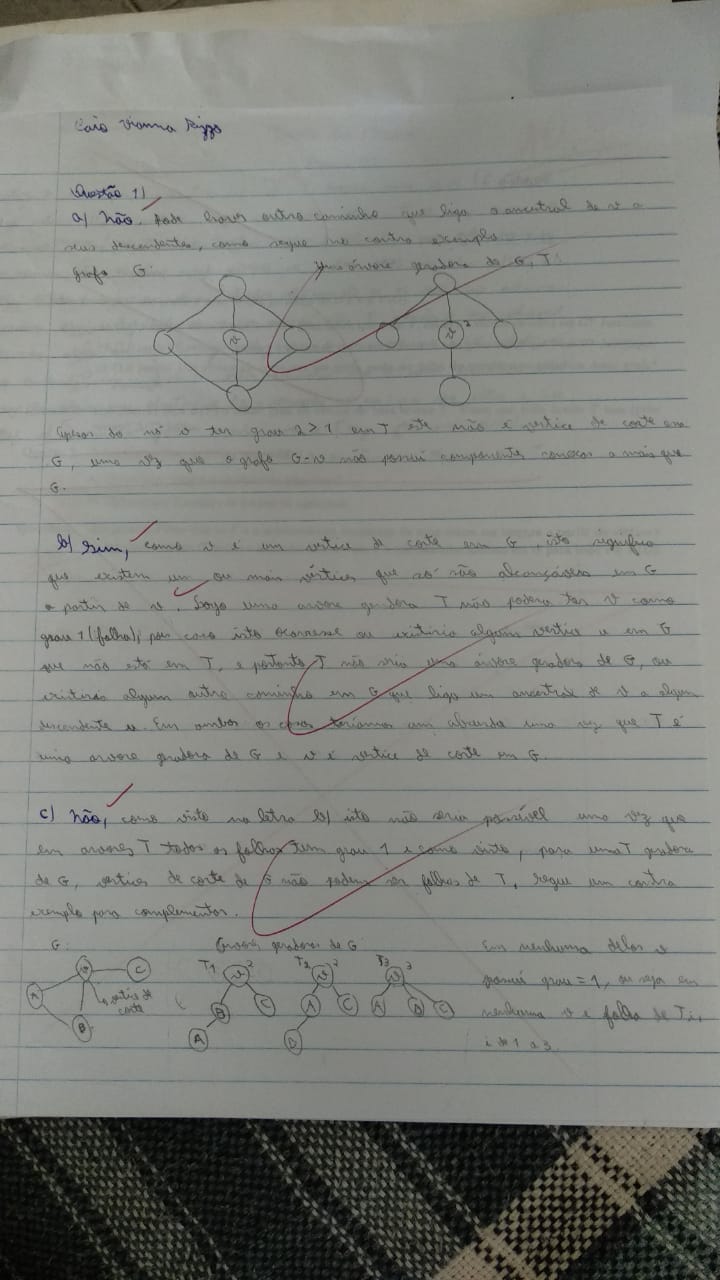 Caio Vianna Rizzo
Questão 1)
a) Não. Pode haver outro caminho que liga o ancestral de v a
seus descendentes, como segue no contra exemplo
grafo G: Uma árvore geradora de G, T:
v v 2
Apesar do nó v ter grau 2 > 1 em T este não é vértice de corte em
G, uma vez que o grafo G-v não possui componentes conexas a mais que
G.
b) Sim, como v é um vértice de corte em G, isto significa
que existem um ou mais vértices que só são alcançáveis em G
a partir de v. Logo uma arvore geradora T não poderia ter v como
grau 1 (folha), pois caso isto ocorresse ou existiria algum vertice u em G
que não está em T, e portanto T não seria uma árvore geradora de G, ou
existiria algum outro caminho em G que liga um ancestral de v a algum
descendente u. Em ambos os casos teríamos um absurdo uma vez que T é
uma arvore geradora de G e v é vertice de corte em G.
c) Não, como visto na letra b) isto não seria possível uma vez que
em arvores T todas as folhas tem grau 1 e como visto, para uma T geradora
de G, vertices de corte de G não podem ser folhas de T, segue um contra
exemplo para complementar.
G: Arvores geradoras de G: Em nenhuma delas v
T1 v 2 T2 v 2 T3 v 3 possui grau = 1, ou seja em
A v C B C A C A B C nenhuma v é folha de Ti,
vertice de corte
B A B i de 1 a 3